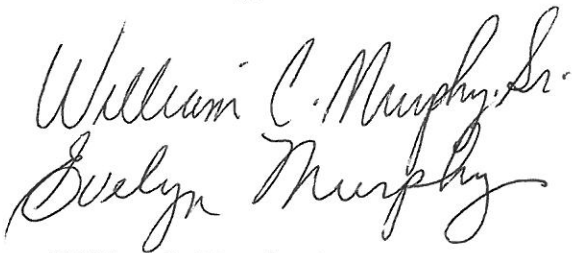 William C. Murphy, Sr.
Evelyn Murphy